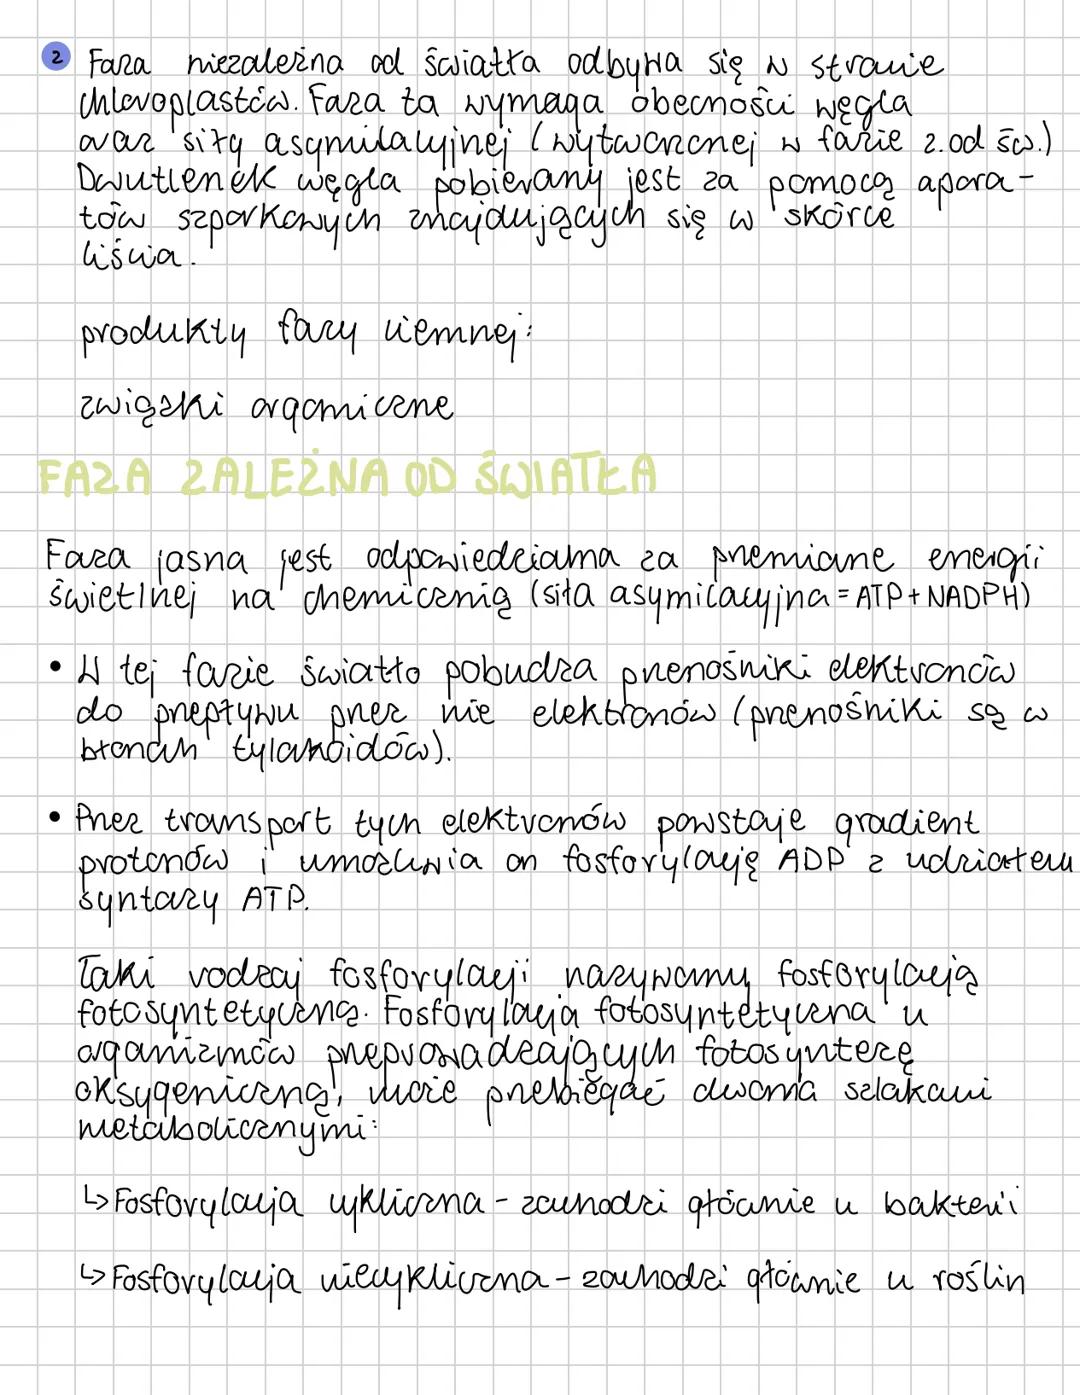 2 Faza niezależna od światła odbywa się w stromie
chloroplastów. Faza ta wymaga obecności węgla
oraz siły asymilacyjnej (wytworzonej w fazie z.od św.)
Dwutlenek węgla pobierany jest za pomocą apara-
tów szparkowych znajdujących się w skórce
liścia.
produkty fazy ciemnej:
związki organiczne
FAZA ZALEŻNA OD ŚWIATŁA
Faza jasna jest odpowiedzialna za przemianę energii
świetlnej na chemiczną (siła asymilacyjna = ATP + NADPH)
• W tej fazie światło pobudza przenośniki elektronów
do przepływu przez nie elektronów (przenośniki są w
błonach tylakoidów).
• Przez transport tych elektronów powstaje gradient
protonów i umożliwia on fosforylację ADP z udziałem
syntazy ATP.
Taki rodzaj fosforylacji nazywamy fosforylacją
fotosyntetyczną. Fosforylacja fotosyntetyczna u
organizmów przeprowadzających fotosyntezę
oksygeniczną, może przebiegać dwoma szlakami
metabolicznymi:
↳ Fosforylacja cykliczna - zachodzi głównie u bakterii
↳ Fosforylacja niecykliczna - zachodzi głównie u roślin